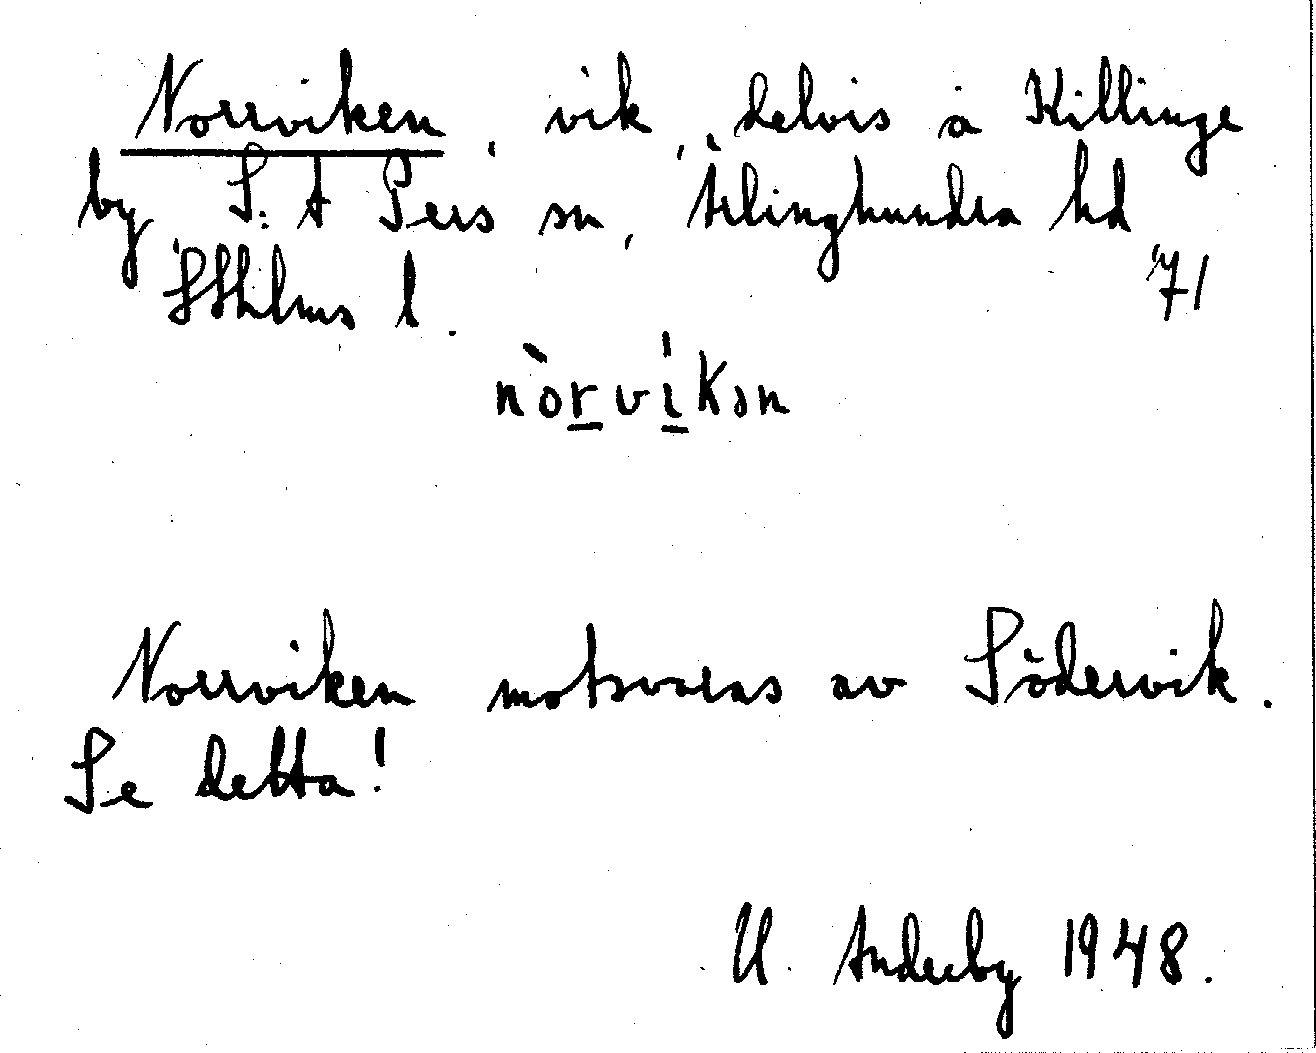 Norrviken, vik, delvis å Killinge
by, S:t Pers sn, Ärlinghundra hd
Sthlms l. 71
nòrvikən
Norrviken motsvaras av Södervik.
Se detta!
U. 1948.